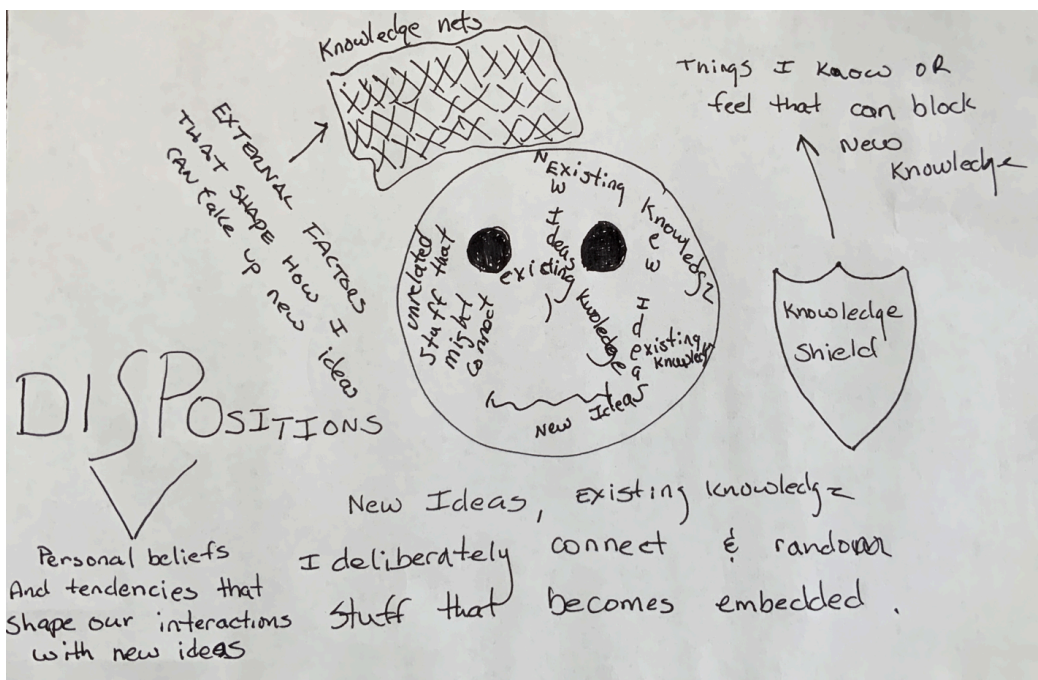 Knowledge nets
EXTERNAL FACTORS
THAT SHAPE HOW I
CAN take up new ideas
Things I know OR
feel that can block
New
Knowledge
Existing Knowledge
New Ideas
existing Knoledge
New Ideas
existing
Knowledge
unrelated
stuff that
might
connect
New Ideas
Knowledge
Shield
DISPOSITIONS
Personal beliefs
And tendencies that
shape our interactions
with new ideas
New Ideas, Existing Knowledge
I deliberately connect & random
stuff that becomes embedded.